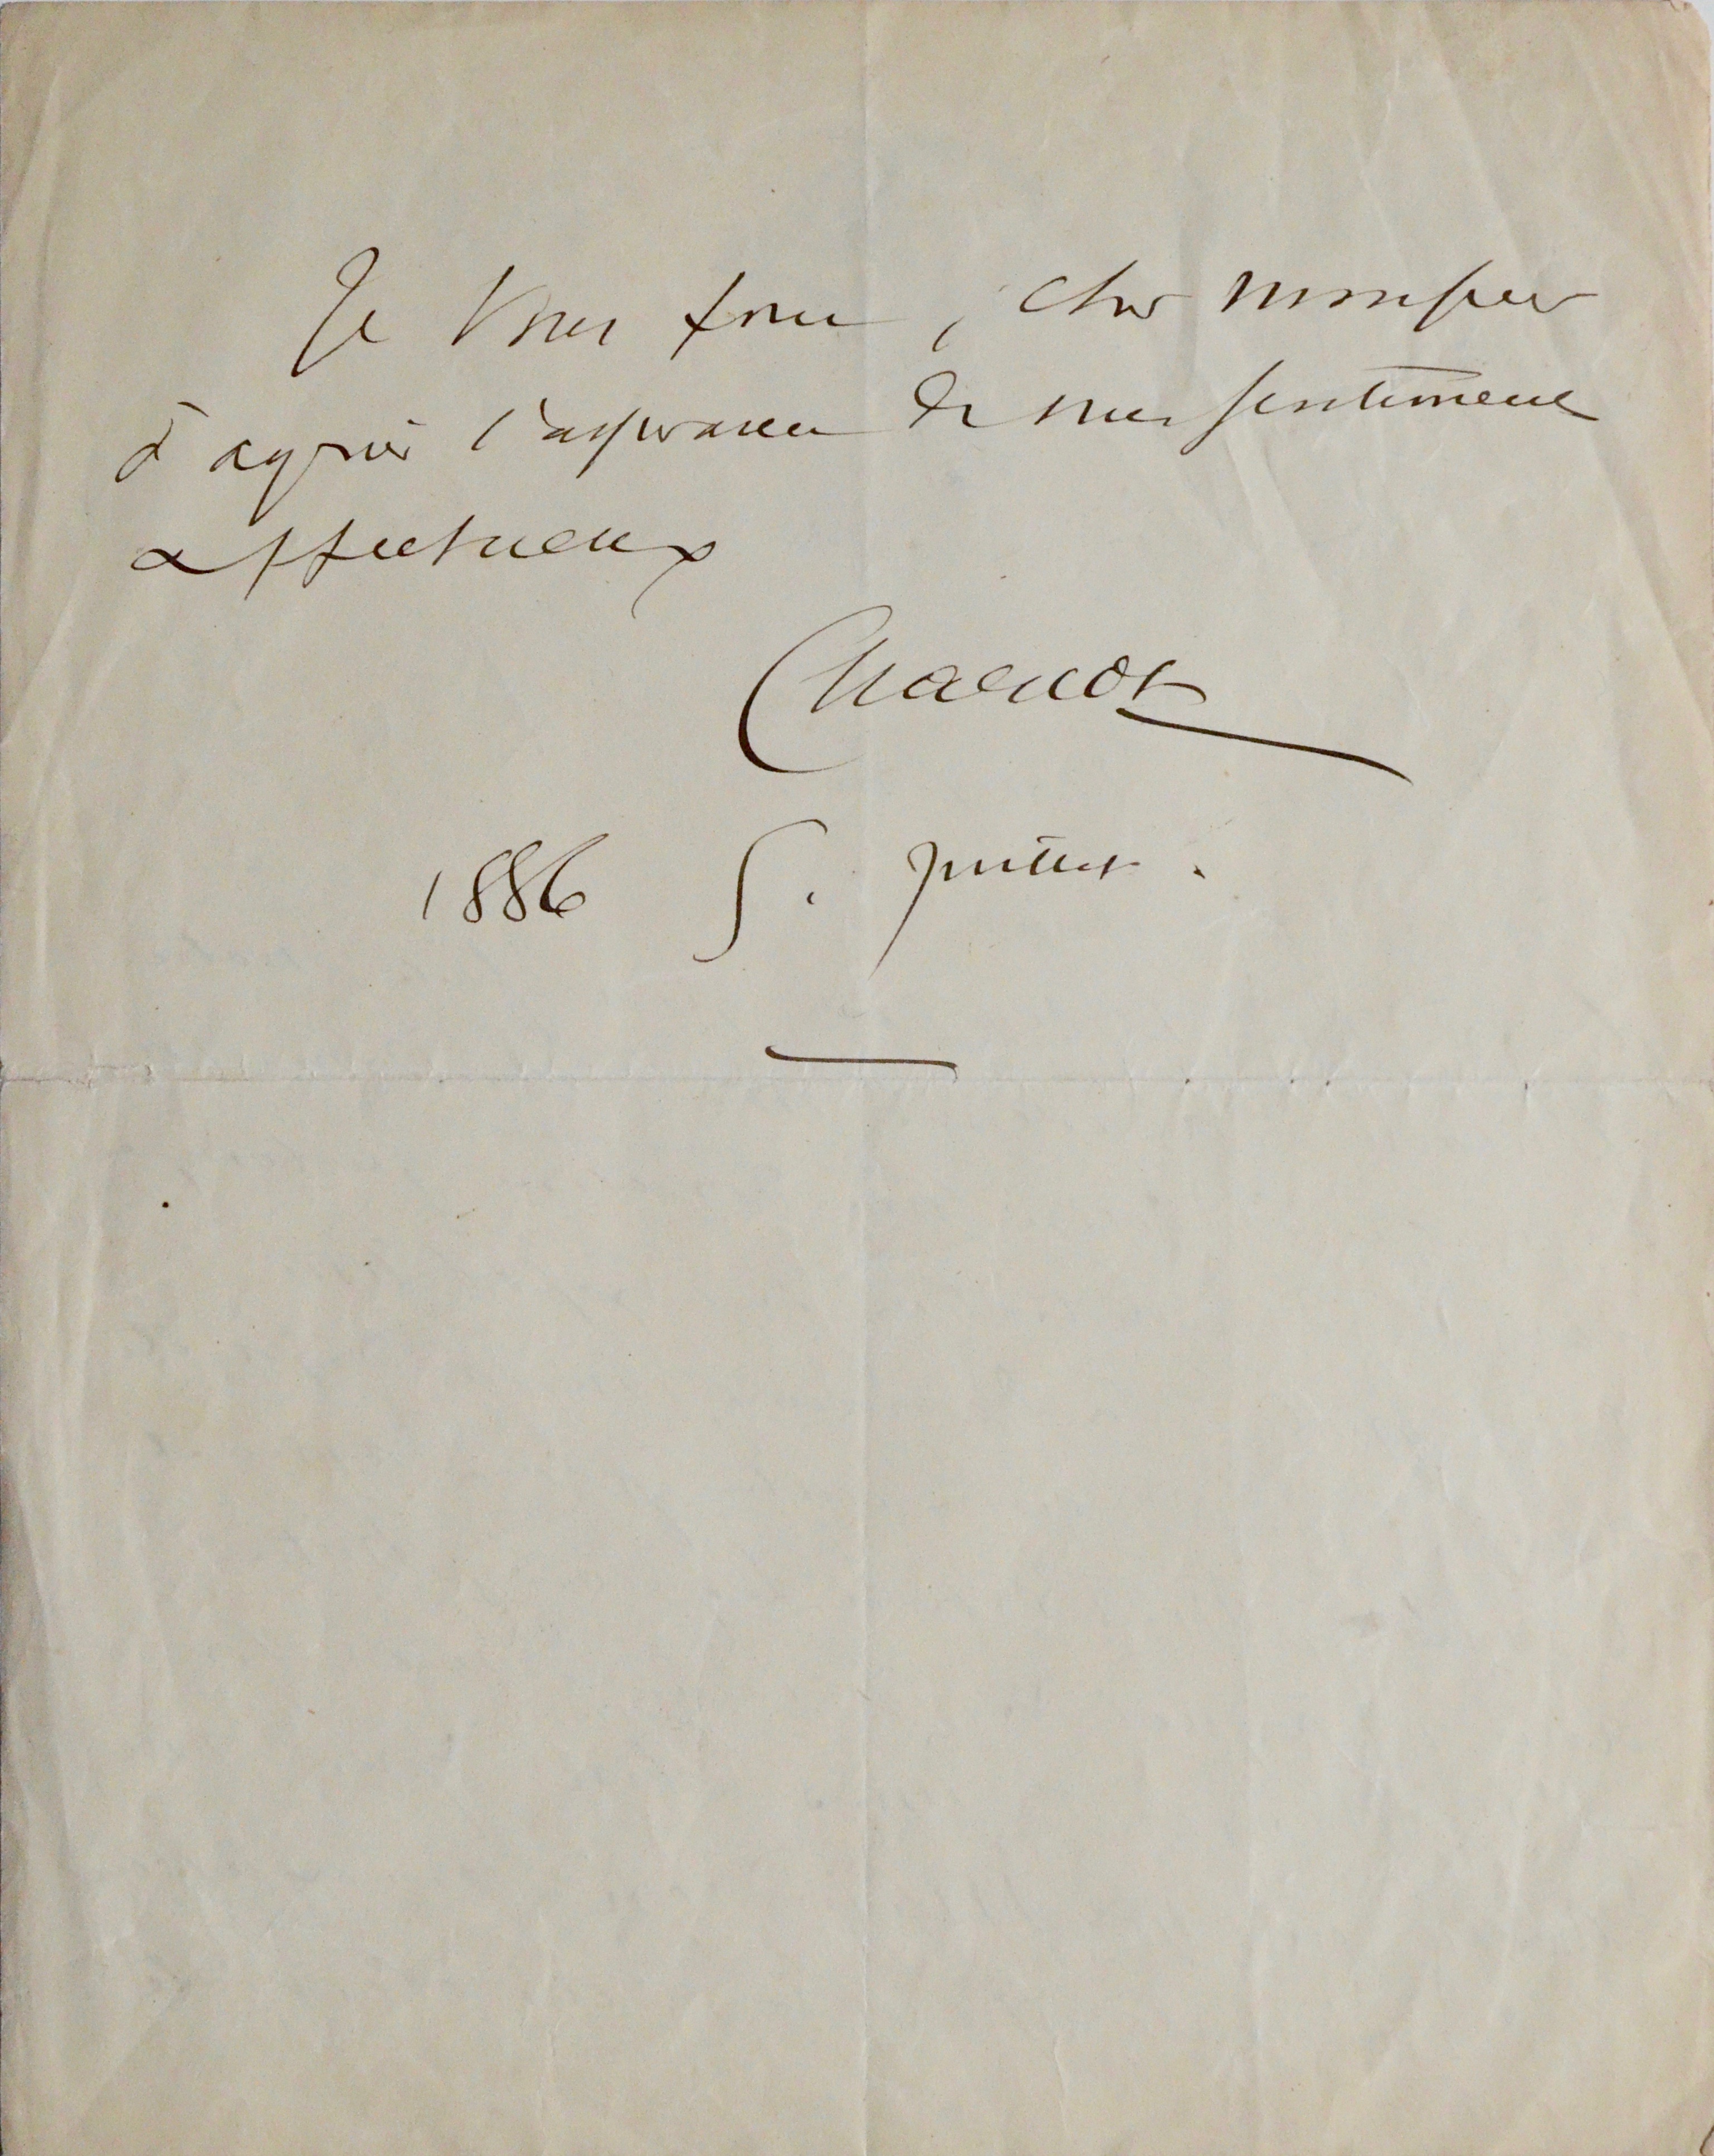 Je vous prie, cher monsieur
d'agréer l'assurance de mes sentiments
affectueux
Charcot
1886 5. juillet.